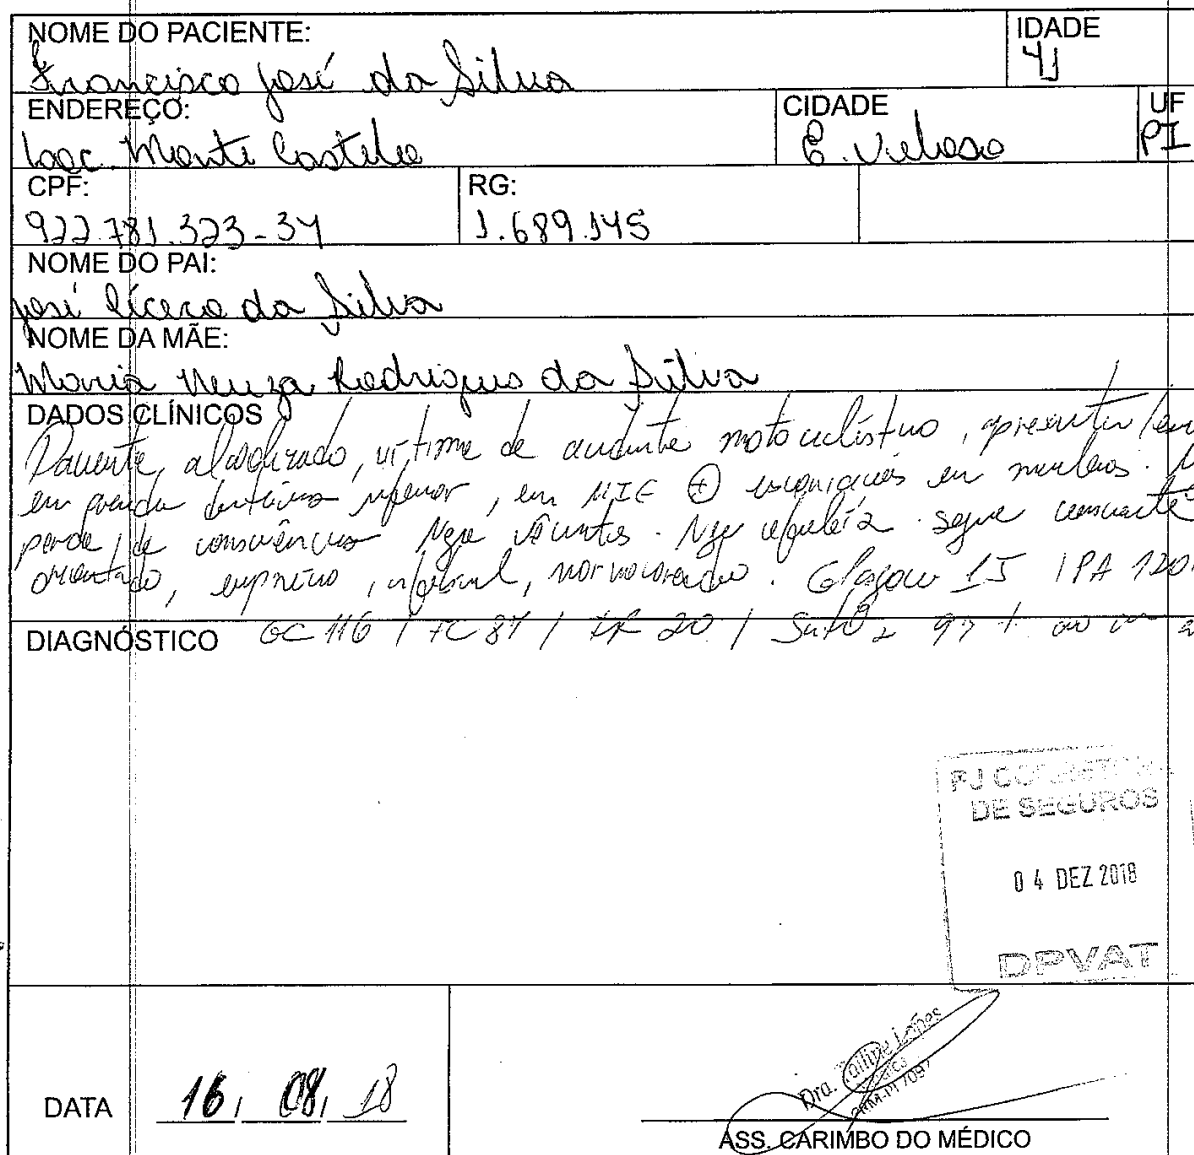 NOME DO PACIENTE: IDADE
Francisco José da Silva 41
ENDEREÇO: CIDADE UF
Loc. Monte Castelo E. Veloso PI
CPF: RG:
922.781.323-34 1.689.145
NOME DO PAI:
José Cícero da Silva
NOME DA MÃE:
Maria Neuza Rodrigues da Silva
DADOS CLÍNICOS
Paciente, alcoolizado, vítima de acidente motociclístico, apresenta
em inferior, em MIE ⊕ escoriações em
perda de consciência Nega vômitos. Nega segue consciente
orientado, eupneico, afebril, normocorado. Glasgow 15 | PA 120
DIAGNÓSTICO GC 116 | FC 87 | FR 20 | SatO2 97
DE SEGUROS
04 DEZ 2018
DPVAT
DATA 16, 08, 18
Dra. Lopes
ASS. CARIMBO DO MÉDICO